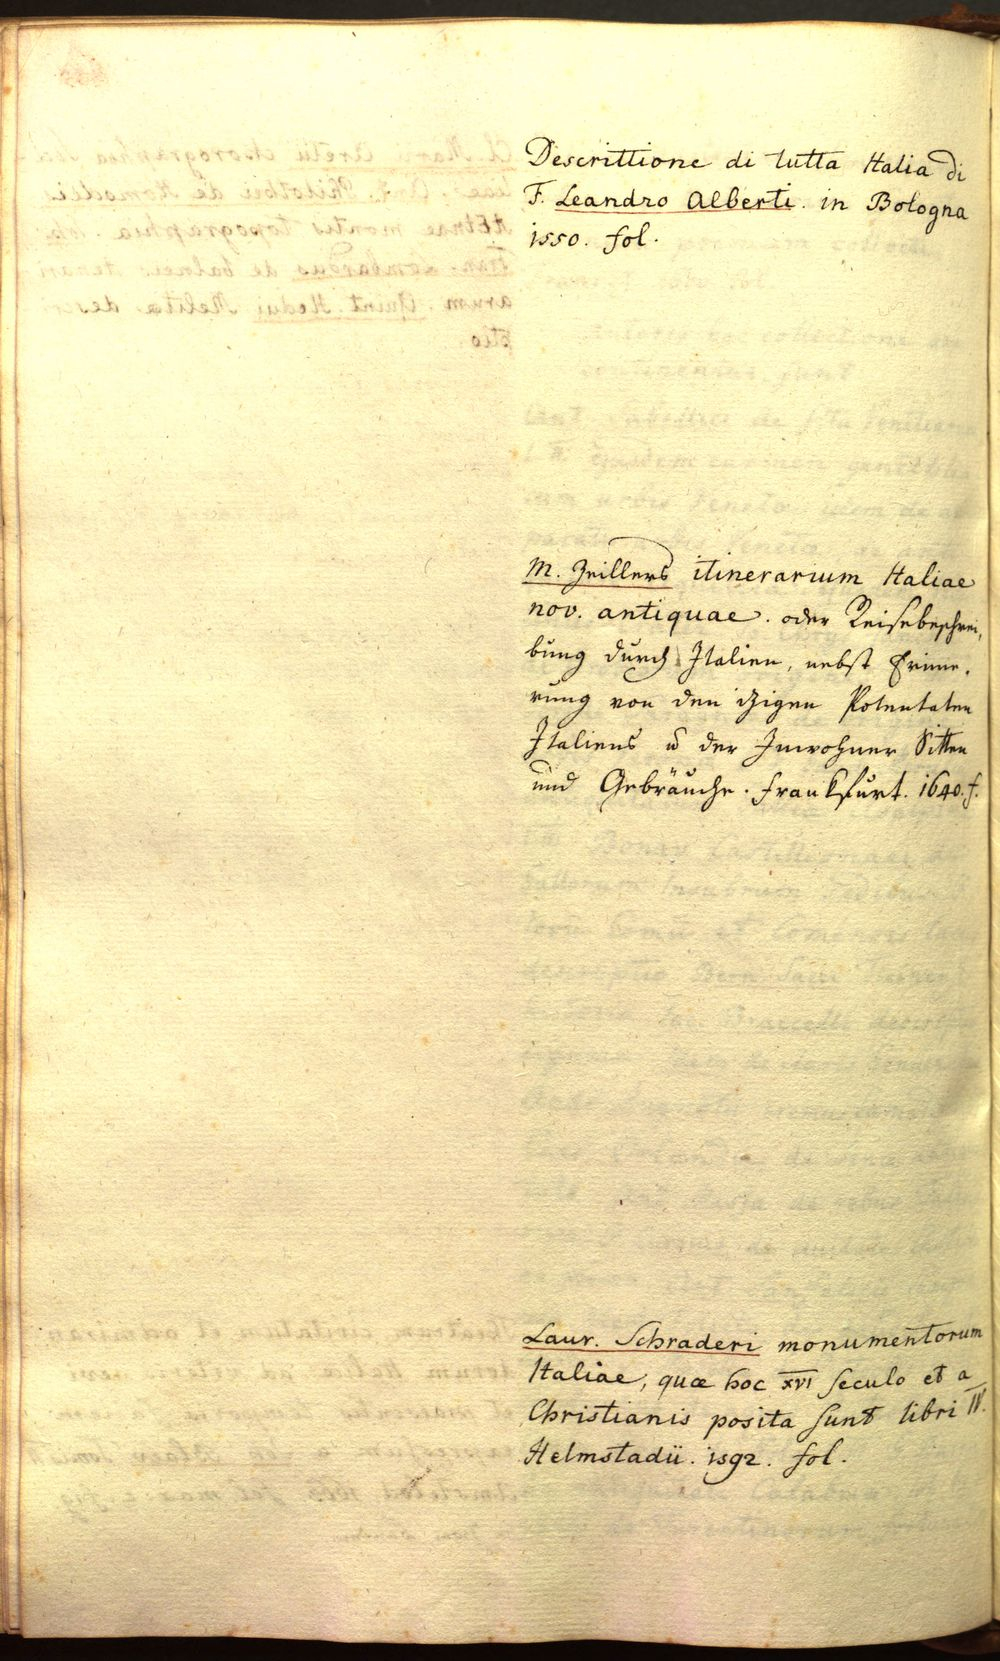 Descrittione di tutta Italia di
F. Leandro Alberti. in Bologna
1550. fol.
M. Zeillers itinerarium Italiae
nov. antiquae. oder Reisebeschrei,
bung durch Italien, nebst Erinne,
rung von den itzigen Potentaten
Italiens u der Inwohner Sitten
und Gebräuche. Frankfurt. 1640. f.
Laur. Schraderi monumentorum
Italiae, quae hoc XVI seculo et a
Christianis posita sunt libri IV.
Helmstadii. 1592. fol.